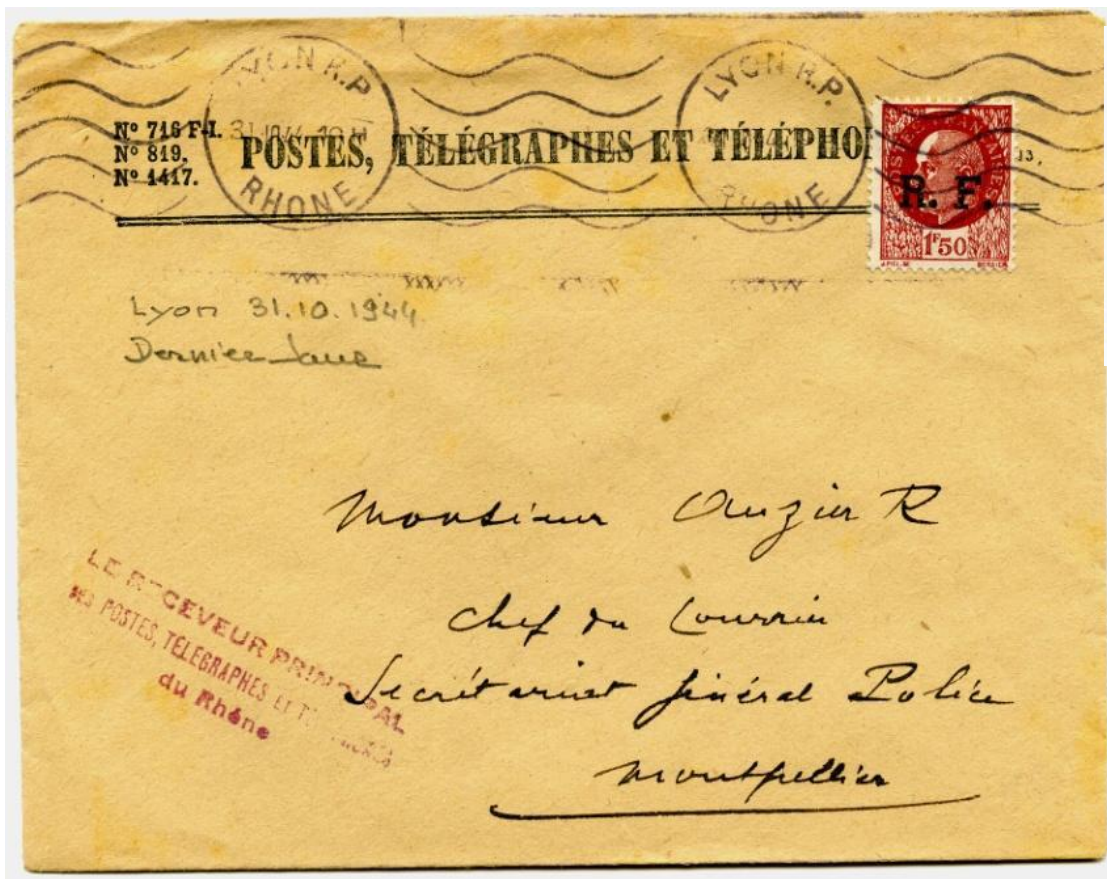 LYON R.P.
31 10 44 10 H
RHONE
LYON R.P.
RHONE
Nº 716 F-I.
Nº 819.
Nº 1417.
POSTES, TÉLÉGRAPHES ET TÉLÉPHO
13.
POSTES FRANÇAISES
R. F.
1F50
Lyon 31.10.1944
Dernier Jour
Monsieur Auzier R
Chef du Courrier
Secrétariat Général Police
Montpellier
LE RECEVEUR PRINCIPAL
DES POSTES, TELEGRAPHES ET TELEPHONES
du Rhône